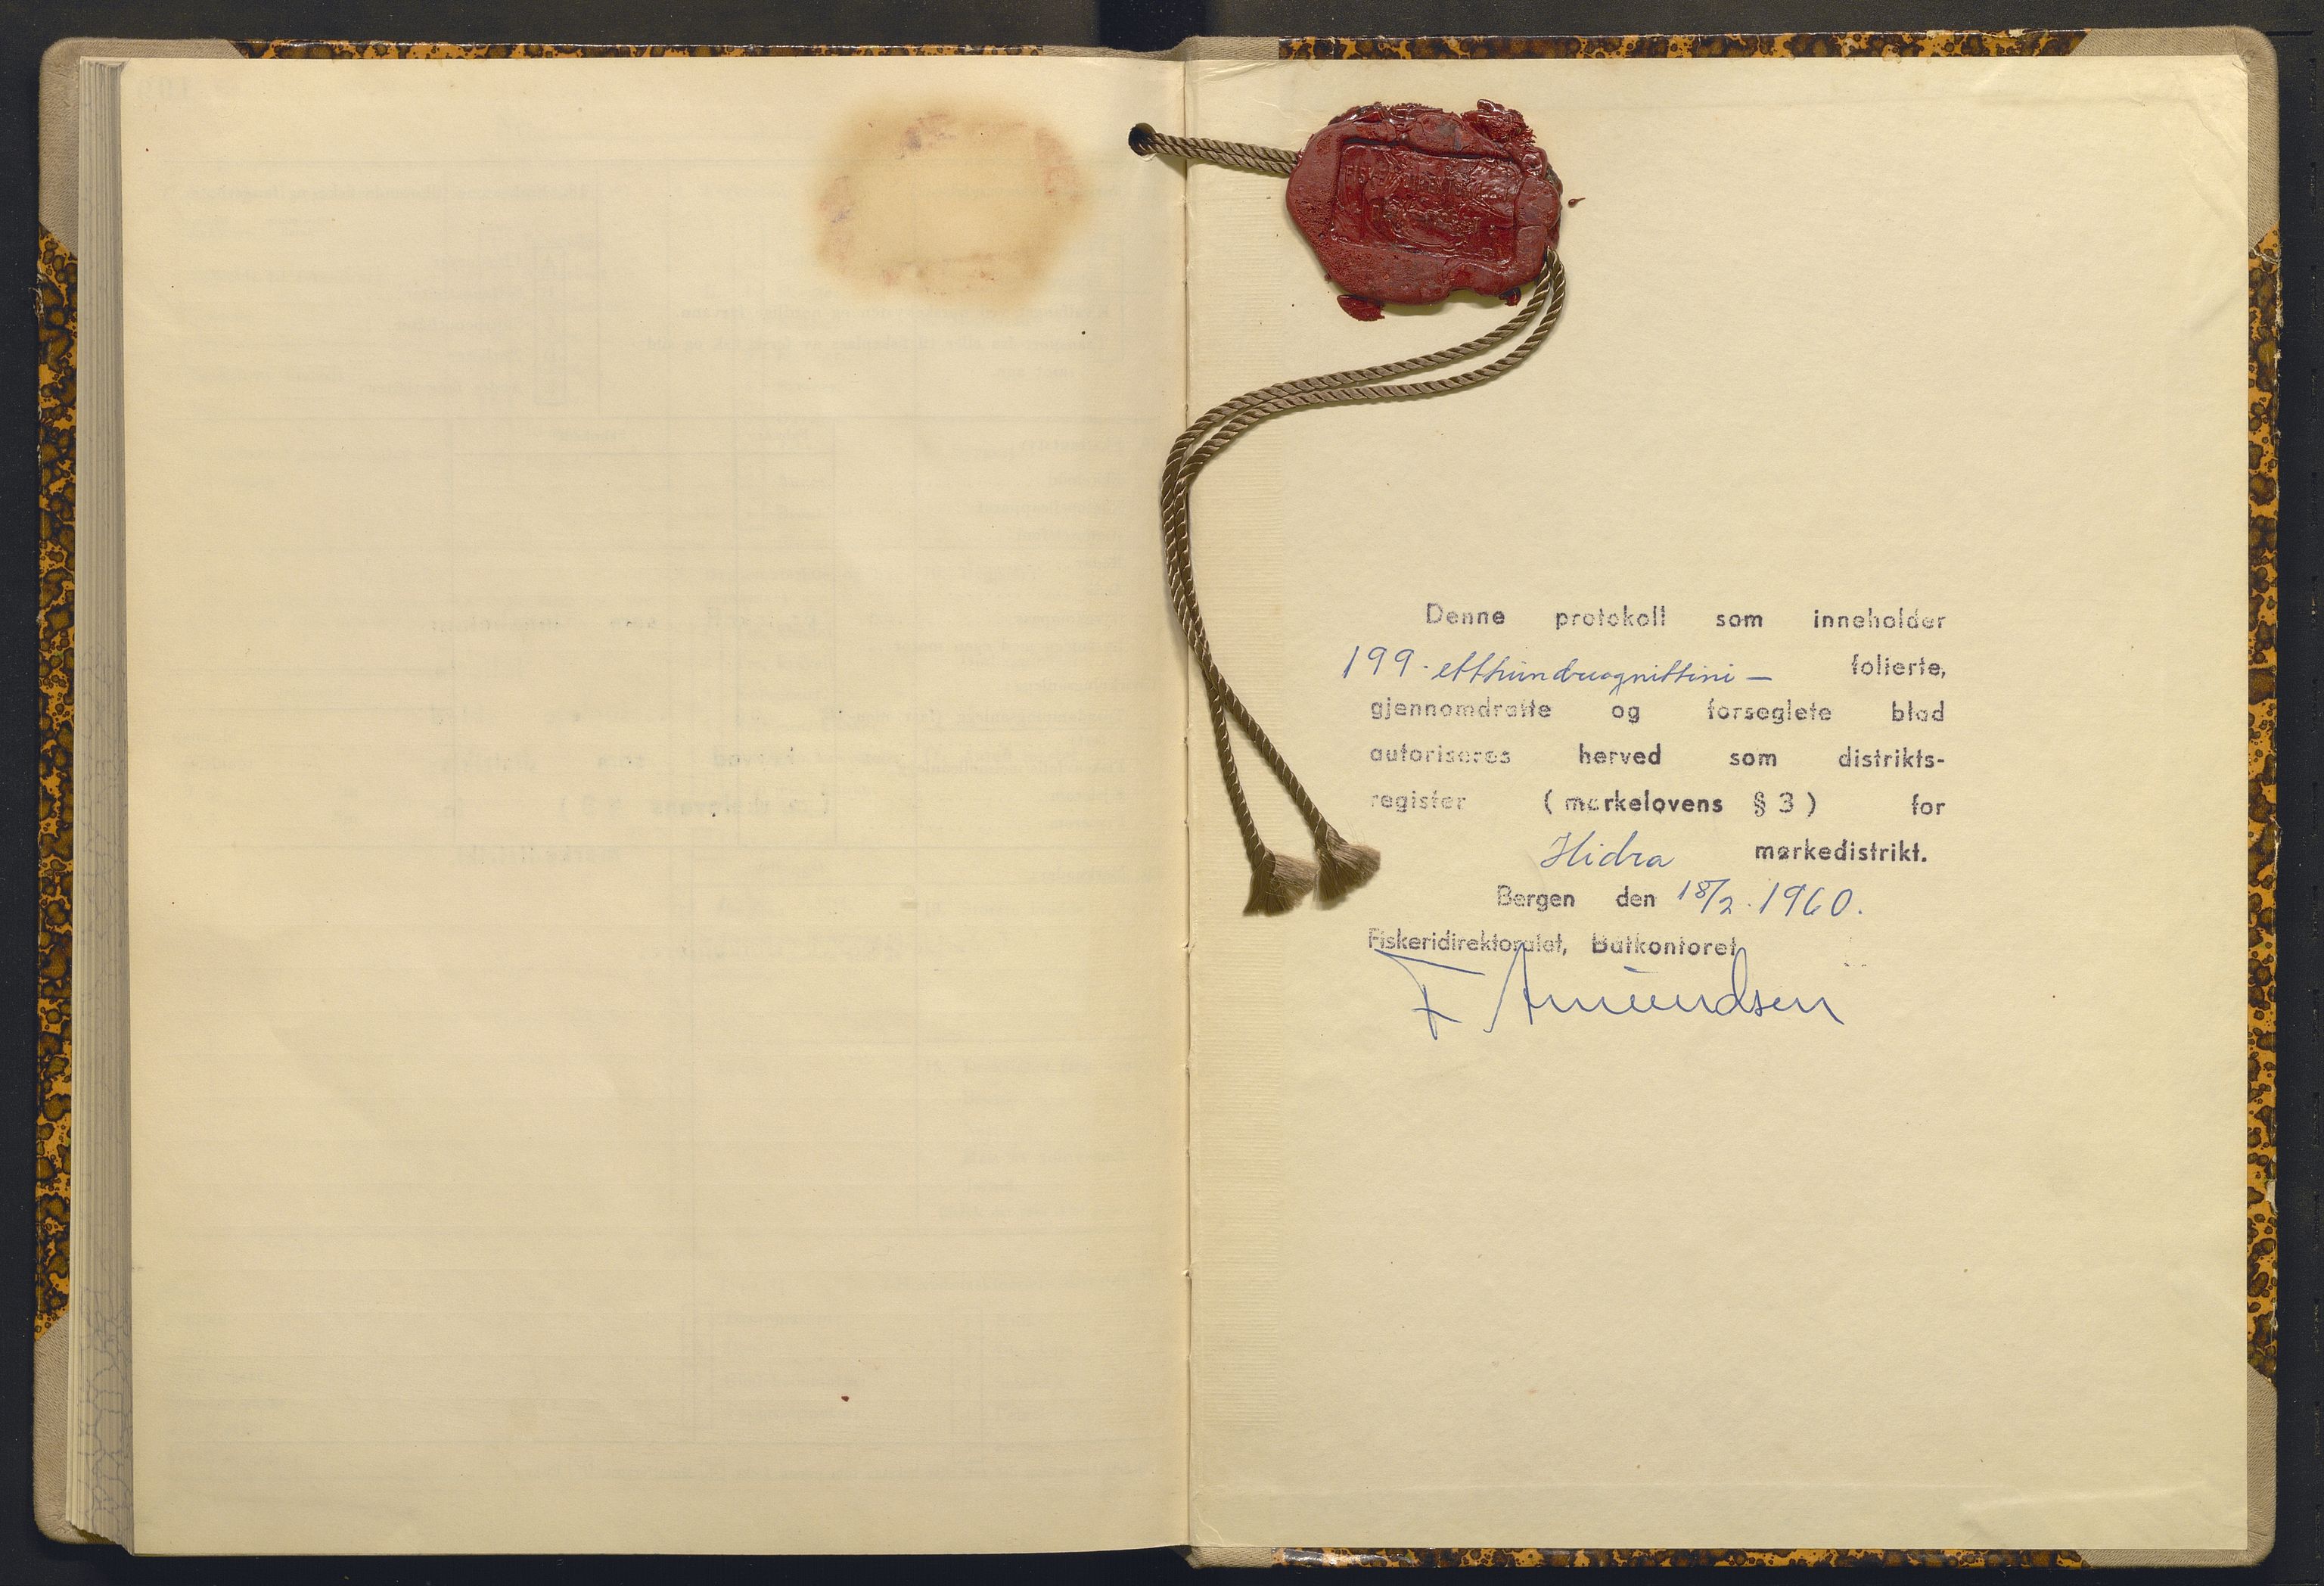 Denne protokoll som inneholder
199 - etthundreognittini - folierte,
gjennomdratte og forseglete blad
autoriseres herved som distrikts-
register (merkelovens § 3) for
Hidra merkedistrikt.
Bergen den 18/2. 1960.
Fiskeridirektoratet, Båtkontoret
F Amundsen